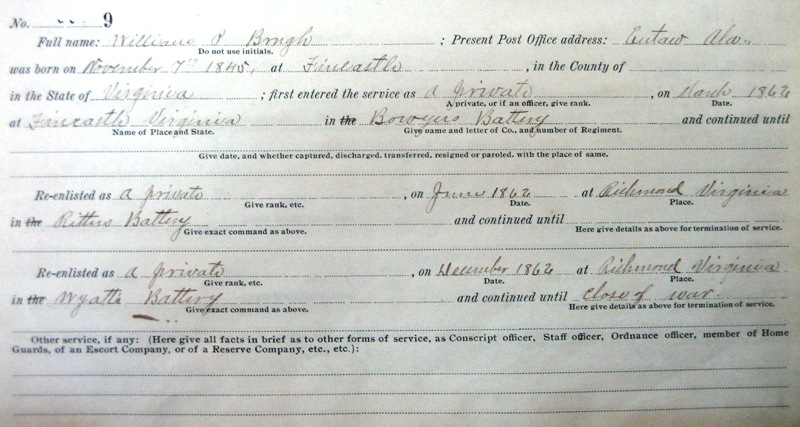 No. 9
Full name: William P Brugh ; Present Post Office address: Eutaw Ala.
Do not use initials.
was born on November 7th 1845, at Fincastle, in the County of
in the State of Virginia ; first entered the service as a private, on March 1862
A private, or if an officer, give rank. Date.
at Fincastle Virginia in the Bowyers Battery and continued until
Name of Place and State. Give name and letter of Co., and number of Regiment.
Give date, and whether captured, discharged. transferred, resigned or paroled. with the place of same.
Re-enlisted as a private, on June 1862 at Richmond Virginia
Give rank, etc. Date. Place.
in the Battery and continued until
Give exact command as above. Here give details as above for termination of service.
Re-enlisted as a private, on December 1862 at Richmond Virginia
Give rank, etc. Date. Place.
in the Wyatts Battery and continued until close of war.
Give exact command as above. Here give details as above for termination of service.
Other service, if any: (Here give all facts in brief as to other forms of service, as Conscript officer, Staff officer, Ordnance officer, member of Home
Guards, of an Escort Company, or of a Reserve Company, etc., etc.):